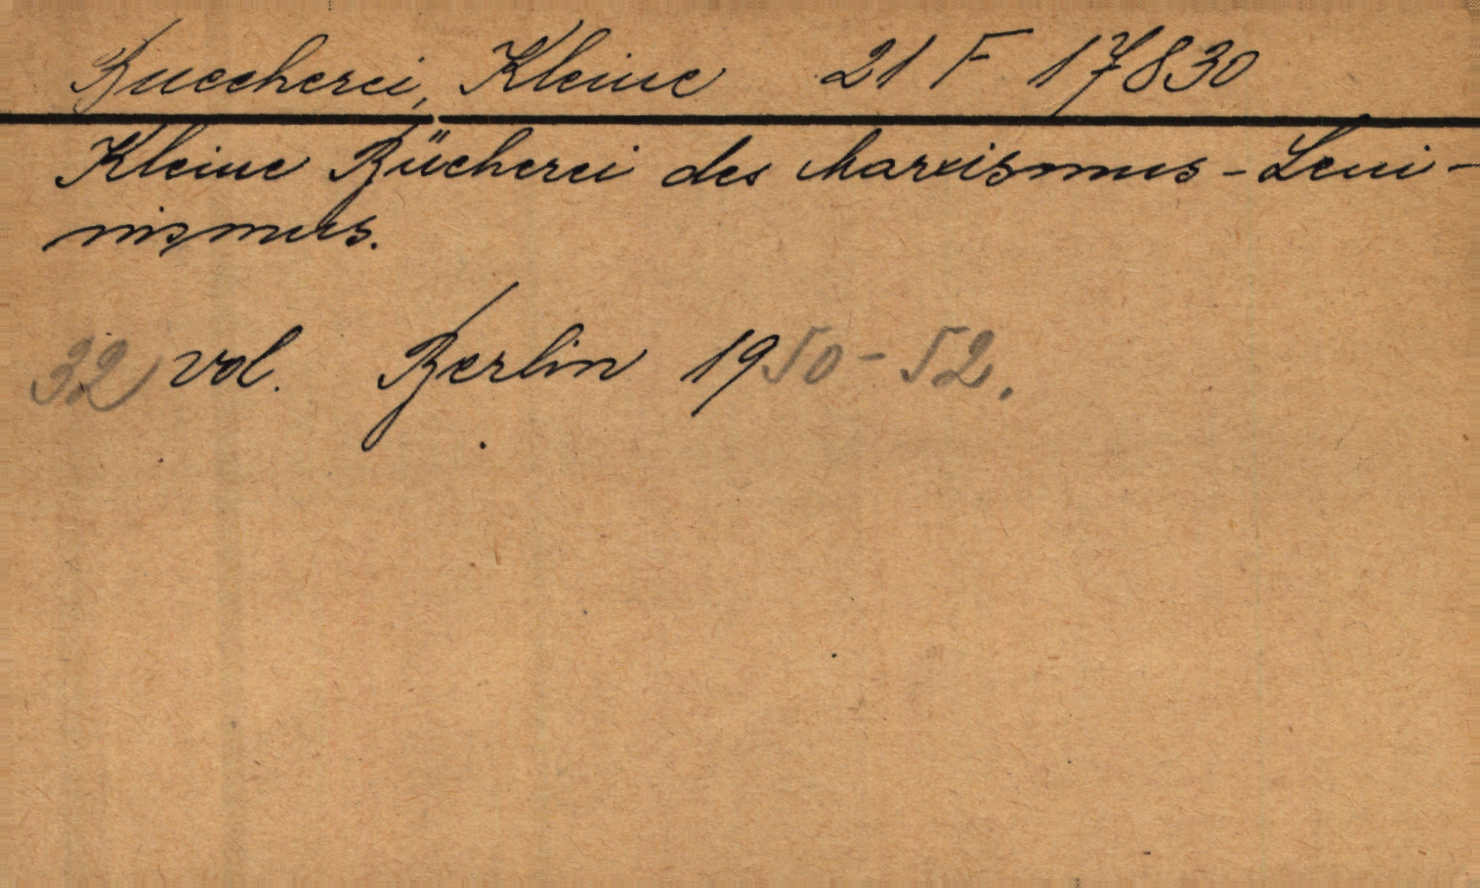 Buecherei, Kleine 21 F 17830
Kleine Bücherei des Marxismus-Leni-
nismus.
32 vol. Berlin 1950-52.